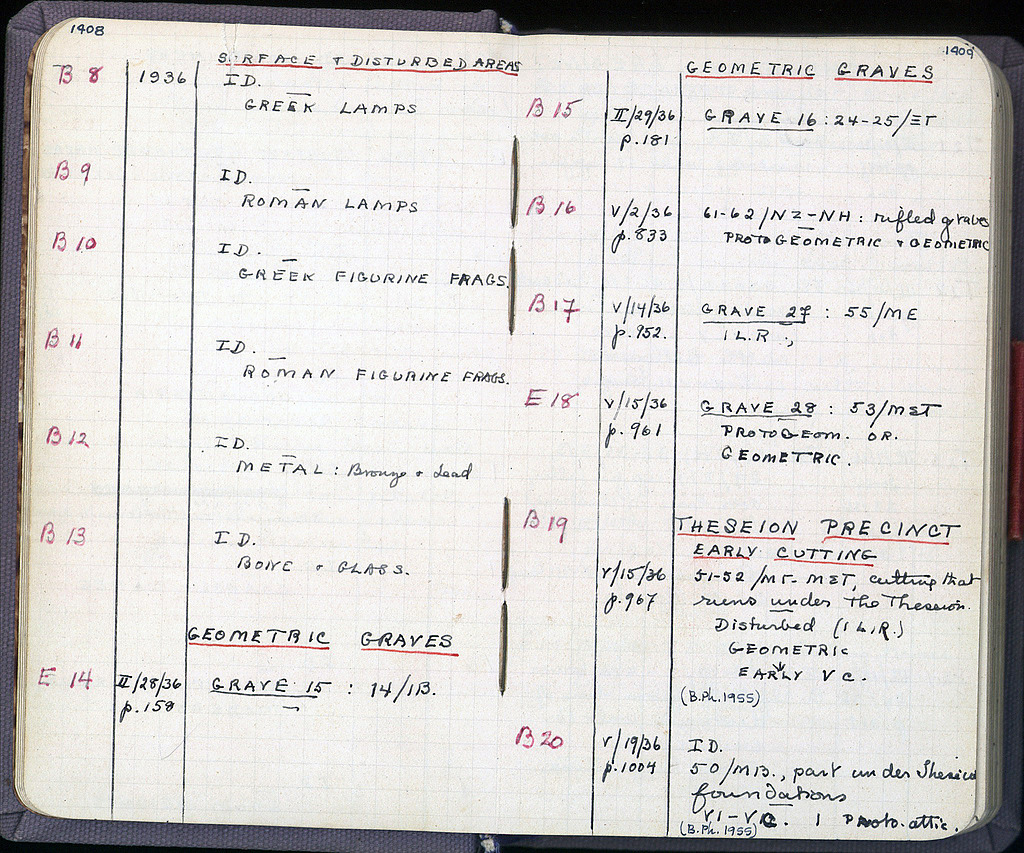 1408
SURFACE & DISTURBED AREAS
B 8 1936 ID.
GREEK LAMPS
B 9 ID.
ROMAN LAMPS
B 10 ID.
GREEK FIGURINE FRAGS.
B 11 ID.
ROMAN FIGURINE FRAGS.
B 12 ID.
METAL : Bronze & Lead
B 13 ID.
BONE & GLASS.
GEOMETRIC GRAVES
E 14 II/28/36 GRAVE 15 : 14/IB.
p. 158
1409
GEOMETRIC GRAVES
B 15 II/29/36 GRAVE 16 : 24-25/ΞΤ
p. 181
B 16 V/2/36 61-62/NZ-NH : rifled graves
p. 833 PROTOGEOMETRIC & GEOMETRIC
B 17 V/14/36 GRAVE 27 : 55/ME
p. 952. 1 L.R.,
E 18 V/15/36 GRAVE 28 : 53/MΣΤ
p. 961 PROTOGEOM. OR.
GEOMETRIC.
B 19 THESEION PRECINCT
EARLY CUTTING
V/15/36 51-52/MΓ-MΣΤ, cutting that
p. 967 runs under the Theseion.
Disturbed (1 L.R.)
GEOMETRIC
↓
EARLY V C.
(B.Ph. 1955)
B 20 V/19/36 ID.
p. 1004 50/MB., part under Theseion
foundations
VI-VC. 1 Proto-attic.
(B.Ph. 1955)